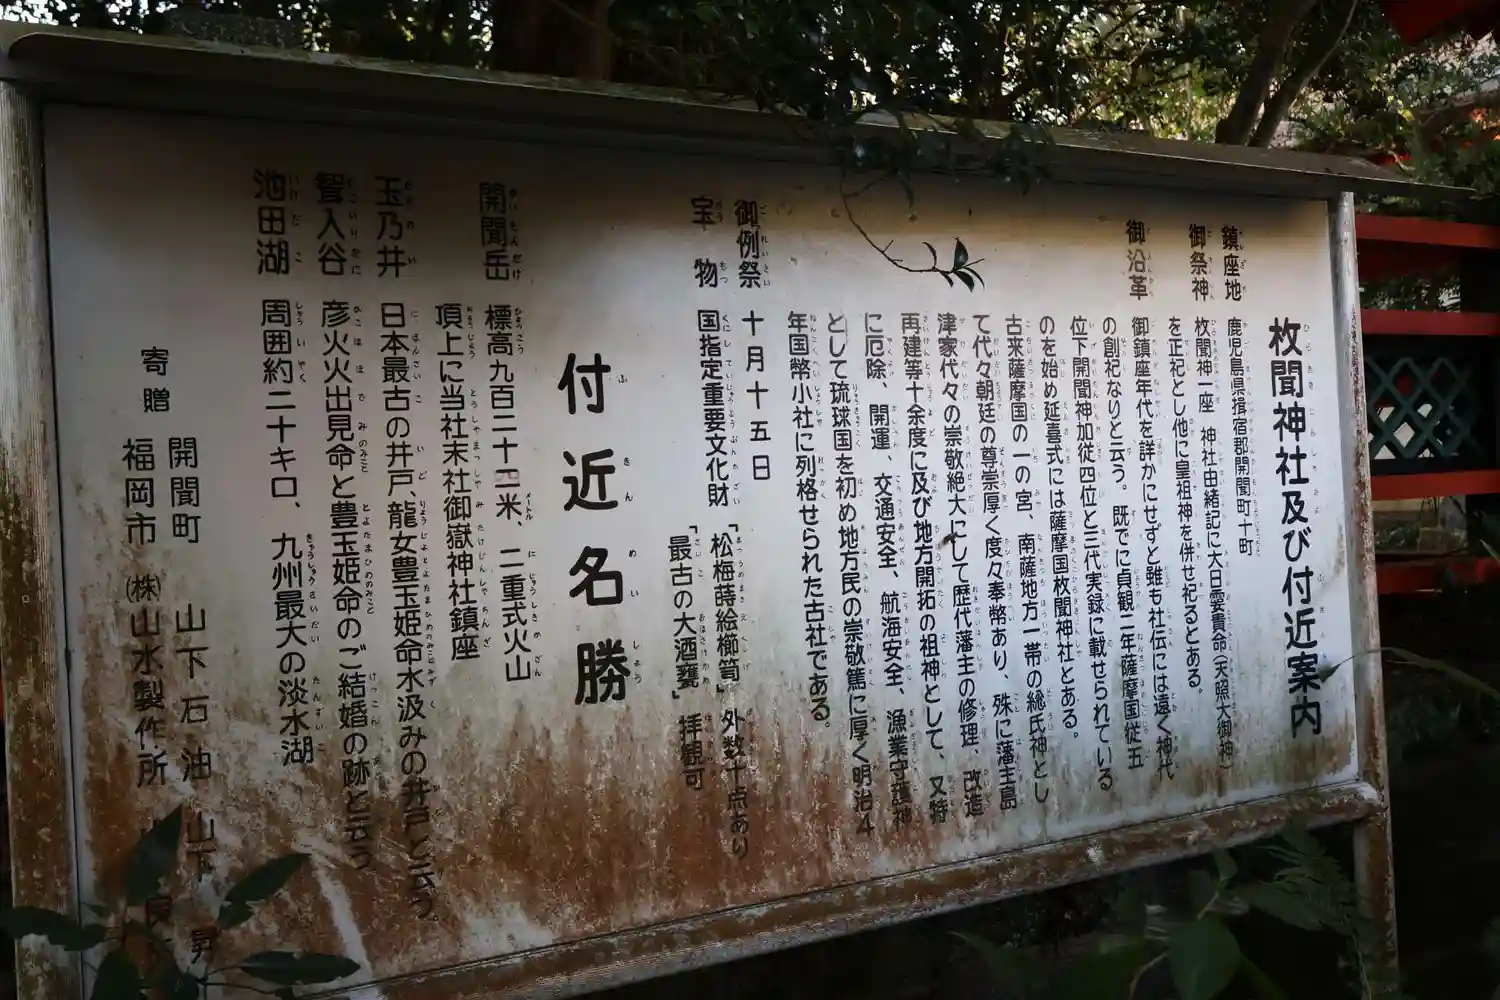 枚聞神社及び付近案内
鎮座地 鹿児島県揖宿郡開聞町十町
御祭神 枚聞神一座 神社由緒記に大日孁貴命(天照大御神)
を正祀とし他に皇祖神を併せ祀るとある。
御沿革 御鎮座年代を詳かにせずと雖も社伝には遠く神代
の創祀なりと云う。既でに貞観二年薩摩国従五
位下開聞神加従四位と三代実録に載せられている
のを始め延喜式には薩摩国枚聞神社とある。
古来薩摩国の一の宮、南薩地方一帯の総氏神とし
て代々朝廷の尊崇厚く度々奉幣あり、殊に藩主島
津家代々の崇敬絶大にして歴代藩主の修理、改造
再建等十余度に及び地方開拓の祖神として、又特
に厄除、開運、交通安全、航海安全、漁業守護神
として琉球国を初め地方民の崇敬篤に厚く明治4
年国幣小社に列格せられた古社である。
御例祭 十月十五日
宝物 国指定重要文化財 「松梅蒔絵櫛笥」外数十点あり
「最古の大酒甕」拝観可
付近名勝
開聞岳 標高九百二十二米、二重式火山
頂上に当社末社御嶽神社鎮座
玉乃井 日本最古の井戸、龍女豊玉姫命水汲みの井戸と云う。
聟入谷 彦火火出見命と豊玉姫命のご結婚の跡と云う
池田湖 周囲約二十キロ、九州最大の淡水湖
寄贈 開聞町 山下石油 山下 昇
福岡市 (株)山水製作所